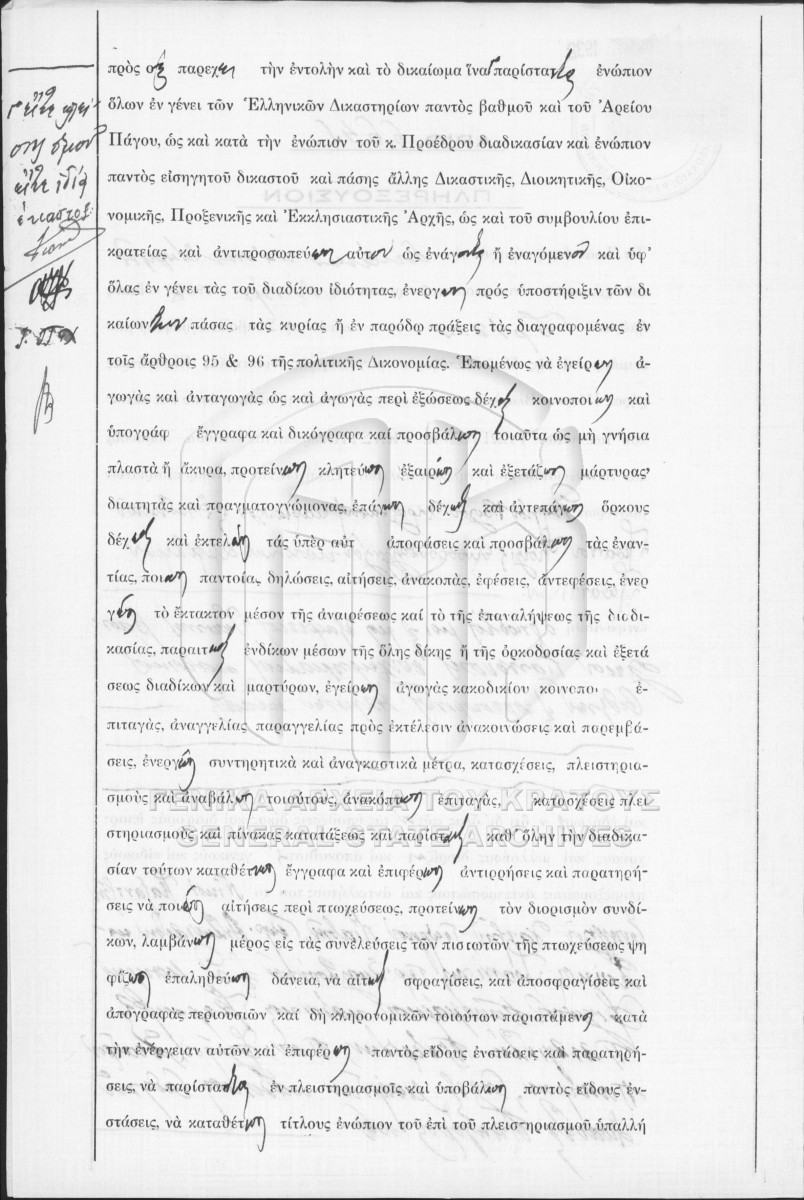 πρὸς οὓς παρέχει τὴν ἐντολὴν καὶ τὸ δικαίωμα ἵνα παρίστανται ἐνώπιον
ὅλων ἐν γένει τῶν Ἑλληνικῶν Δικαστηρίων παντὸς βαθμοῦ καὶ τοῦ Ἀρείου
Πάγου, ὡς καὶ κατὰ τὴν ἐνώπιον τοῦ κ. Προέδρου διαδικασίαν καὶ ἐνώπιον
παντὸς εἰσηγητοῦ δικαστοῦ καὶ πάσης ἄλλης Δικαστικῆς, Διοικητικῆς, Οἰκο-
νομικῆς, Προξενικῆς καὶ Ἐκκλησιαστικῆς Ἀρχῆς, ὡς καὶ τοῦ συμβουλίου ἐπι-
κρατείας καὶ ἀντιπροσωπεύωσιν αὐτὸν ὡς ἐνάγοντα ἢ ἐναγόμενον καὶ ὑφ'
ὅλας ἐν γένει τὰς τοῦ διαδίκου ἰδιότητας, ἐνεργῶσι πρός ὑποστήριξιν τῶν δι
καίων των πάσας τὰς κυρίας ἢ ἐν παρόδῳ πράξεις τὰς διαγραφομένας ἐν
τοῖς ἄρθροις 95 & 96 τῆς πολιτικῆς Δικονομίας. Ἑπομένως νὰ ἐγείρωσι ἀ-
γωγὰς καὶ ἀνταγωγὰς ὡς καὶ ἀγωγὰς περὶ ἐξώσεως δέχωνται κοινοποιῶσι καὶ
ὑπογράφ ἔγγραφα καὶ δικόγραφα καί προσβάλωσι τοιαῦτα ὡς μὴ γνήσια
πλαστὰ ἤ ἄκυρα, προτείνωσι κλητεύωσι ἐξαιρῶσι καὶ ἐξετάζωσι μάρτυρας
διαιτητὰς καὶ πραγματογνώμονας, ἐπάγωσι δέχωνται καὶ ἀντεπάγωσι ὅρκους
δέχωνται καὶ ἐκτελῶσι τάς ὑπὲρ αὐτ ἀποφάσεις καὶ προσβάλωσι τὰς ἐναν-
τίας, ποιῶσι παντοίας δηλώσεις, αἰτήσεις, ἀνακοπὰς, ἐφέσεις, ἀντεφέσεις, ἐνερ
γῶσι τὸ ἔκτακτον μέσον τῆς ἀναιρέσεως καί τὸ τῆς ἐπαναλήψεως τῆς διαδι-
κασίας, παραιτῶνται ἐνδίκων μέσων τῆς ὅλης δίκης ἢ τῆς ὁρκοδοσίας καὶ ἐξετά
σεως διαδίκων καὶ μαρτύρων, ἐγείρωσι ἀγωγὰς κακοδικίου κοινοποι ἐ-
πιταγὰς, ἀναγγελίας παραγγελίας πρὸς ἐκτέλεσιν ἀνακοινώσεις καὶ παρεμβά-
σεις, ἐνεργῶσι συντηρητικὰ καὶ ἀναγκαστικὰ μέτρα, κατασχέσεις, πλειστηρια-
σμοὺς καὶ ἀναβάλωσι τοιούτους, ἀνακόπτωσι ἐπιταγὰς, κατασχέσεις πλει
στηριασμοὺς καὶ πίνακας κατατάξεως καὶ παρίστανται καθ' ὅλην τὴν διαδικα-
σίαν τούτων καταθέτωσι ἔγγραφα καὶ ἐπιφέρωσι ἀντιρρήσεις καὶ παρατηρή-
σεις νὰ ποιῶσι αἰτήσεις περὶ πτωχεύσεως, προτείνωσι τὸν διορισμὸν συνδί-
κων, λαμβάνωσι μέρος εἰς τὰς συνελεύσεις τῶν πιστωτῶν τῆς πτωχεύσεως ψη
φίζωσι ἐπαληθεύωσι δάνεια, νὰ αἰτῶνται σφραγίσεις, καὶ ἀποσφραγίσεις καὶ
ἀπογραφὰς περιουσιῶν καί δὴ κληρονομικῶν τοιούτων παριστάμενοι κατὰ
τὴν ἐνέργειαν αὐτῶν καὶ ἐπιφέρωσι παντὸς εἴδους ἐνστάσεις καὶ παρατηρή-
σεις, νὰ παρίστανται ἐν πλειστηριασμοῖς καὶ ὑποβάλωσι παντὸς εἴδους ἐν-
στάσεις, νὰ καταθέτωσι τίτλους ἐνώπιον τοῦ ἐπὶ τοῦ πλειστηριασμοῦ ὑπαλλή
εἴτε
εἴτε ἰδίᾳ
ἕκαστος
ΓΕΝΙΚΑ ΑΡΧΕΙΑ ΤΟΥ ΚΡΑΤΟΥΣ
GENERAL STATE ARCHIVES